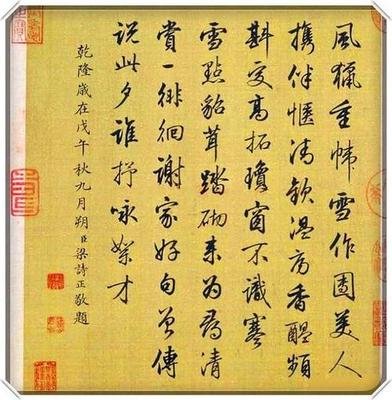 風獵重帷雪作團美人
携伴愜清歡溫房香醞頻
斟高拓瓊窗不識寒
雪點貂茸踏砌來為尋清
賞一徘徊謝家好句曾傳
說此夕誰抒咏絮才
乾隆歲在戊午秋九月朔臣梁詩正敬題